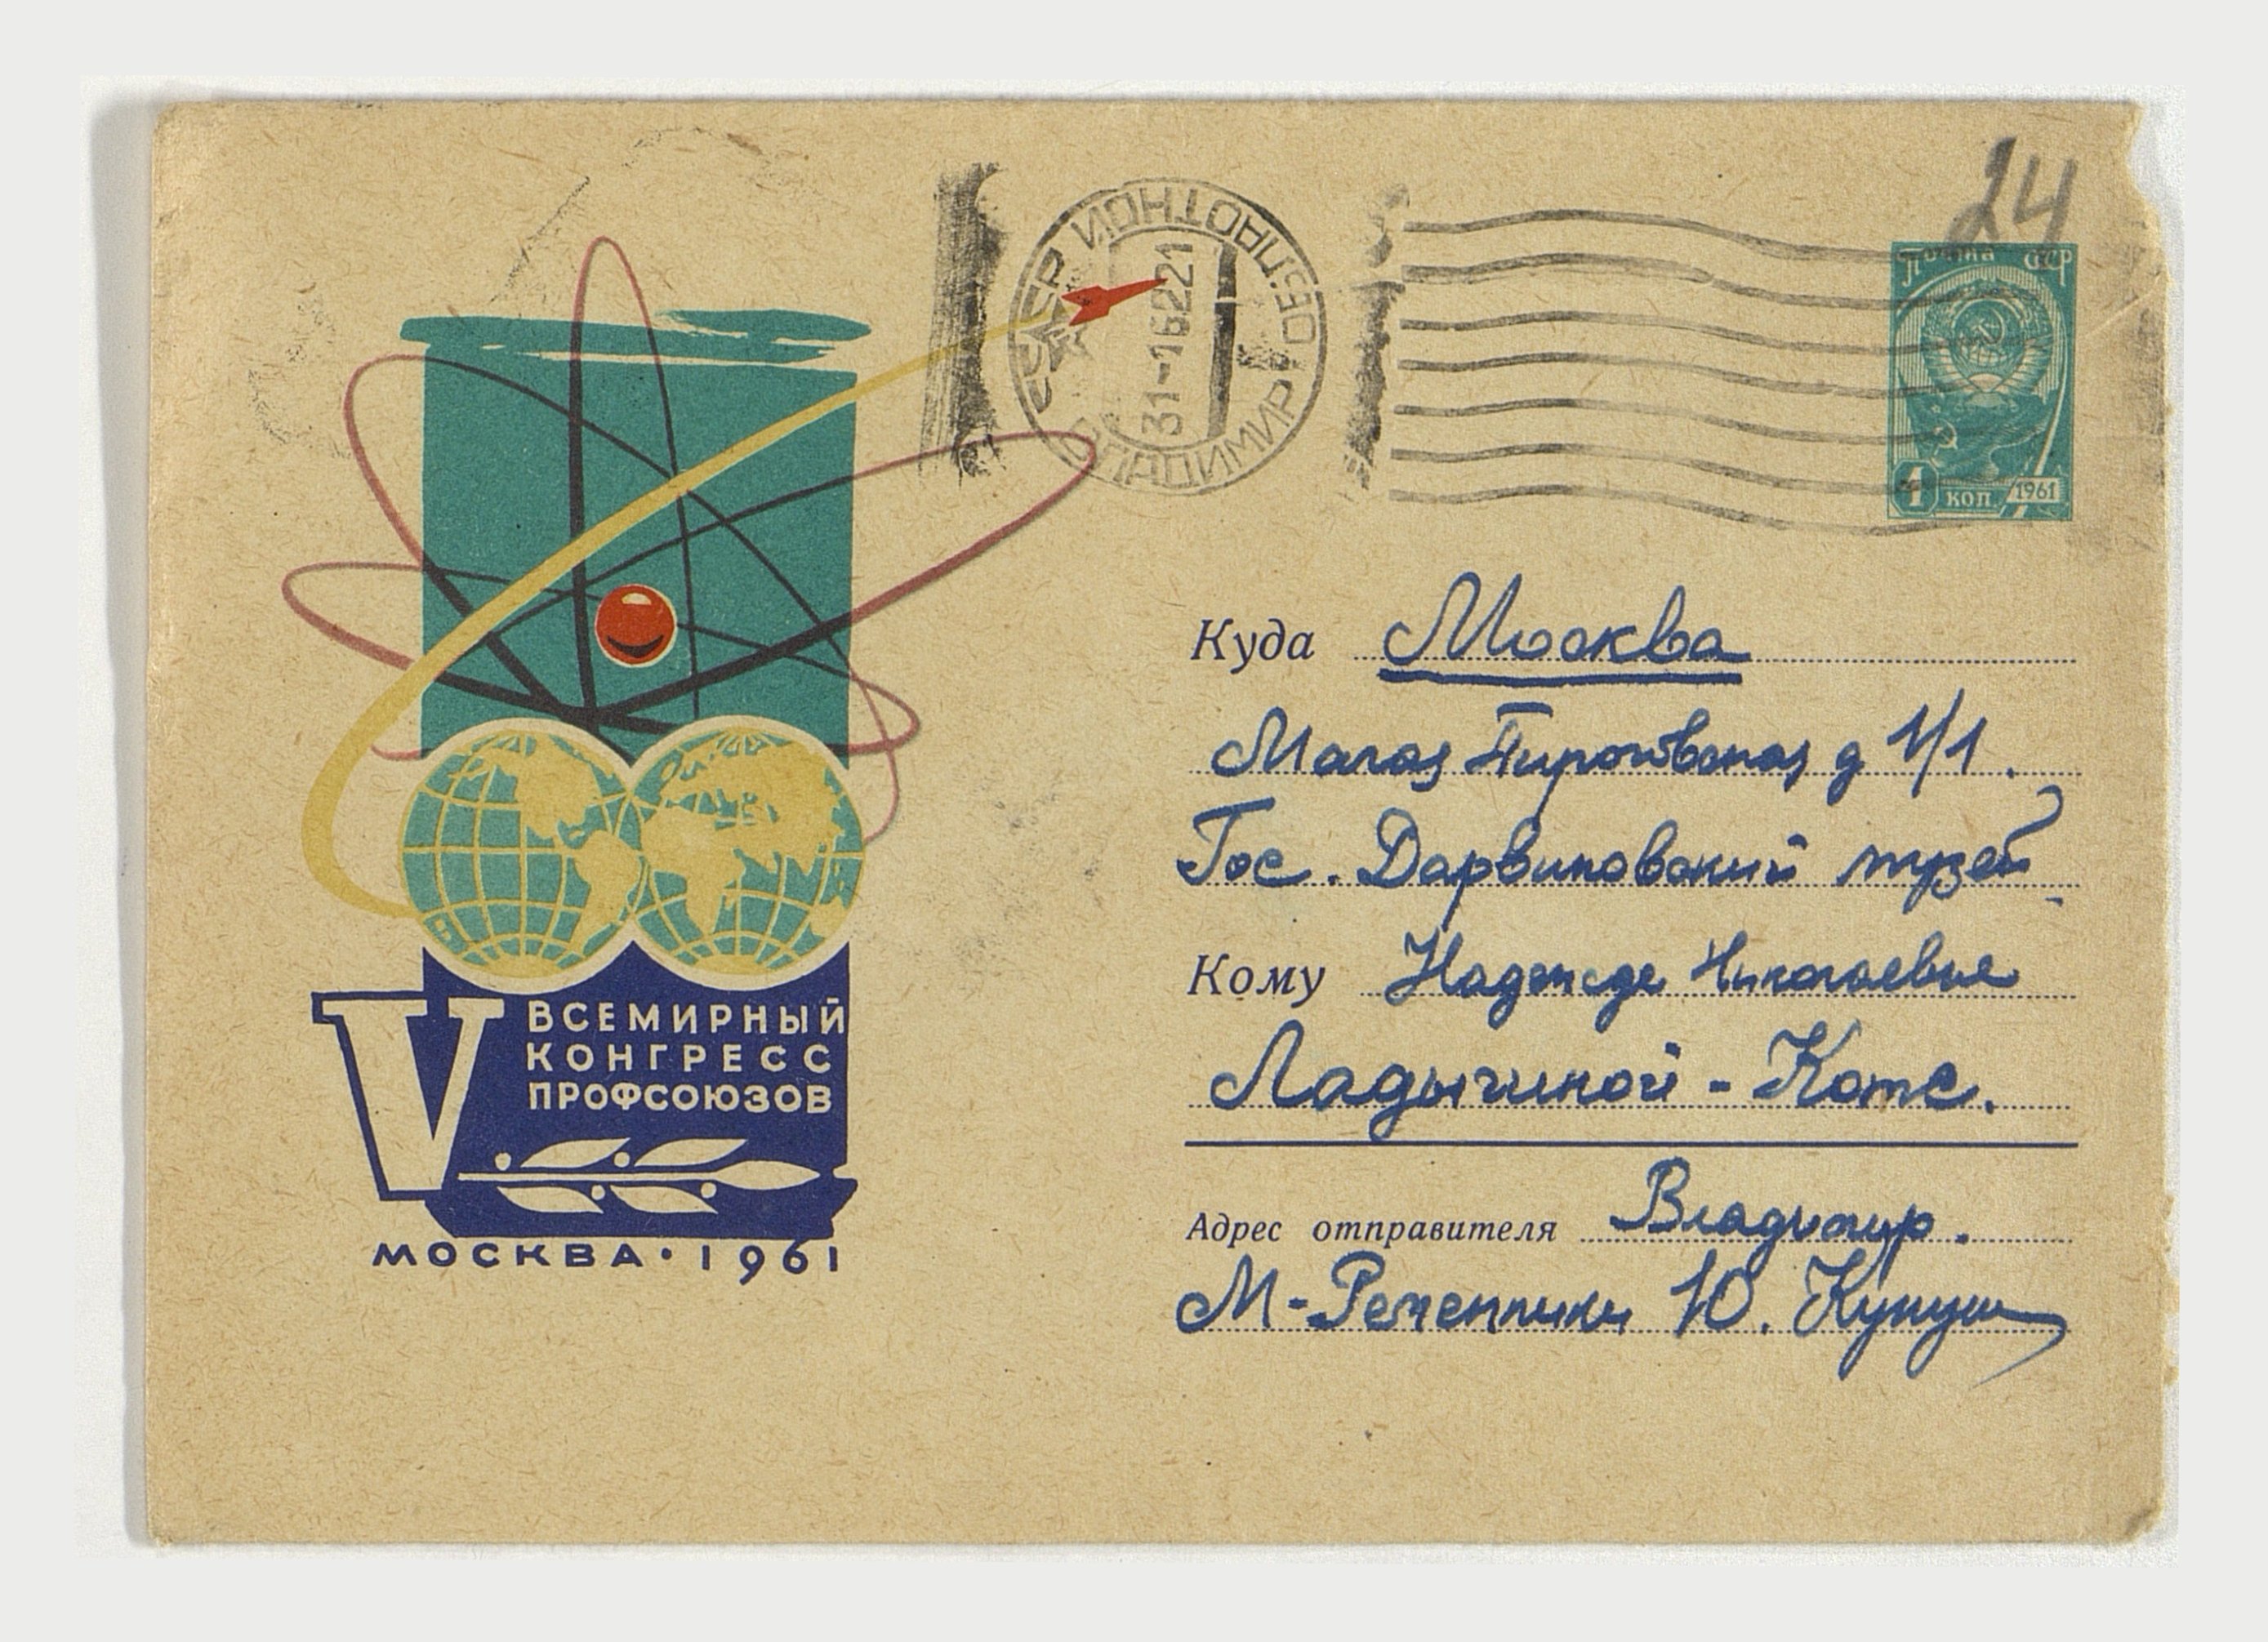 24
ПОЧТА СССР
4 КОП. 1961
СССР
ВЛАДИМИР ОБЛАСТНОЙ
31-1 62 21
Куда Москва
Малая Пироговская д 1/1.
Гос. Дарвиновский музей.
Кому Надежде Николаевне
Ладыгиной-Котс.
Адрес отправителя Владимир.
М-Ременники Ю.
V ВСЕМИРНЫЙ
КОНГРЕСС
ПРОФСОЮЗОВ
МОСКВА • 1961